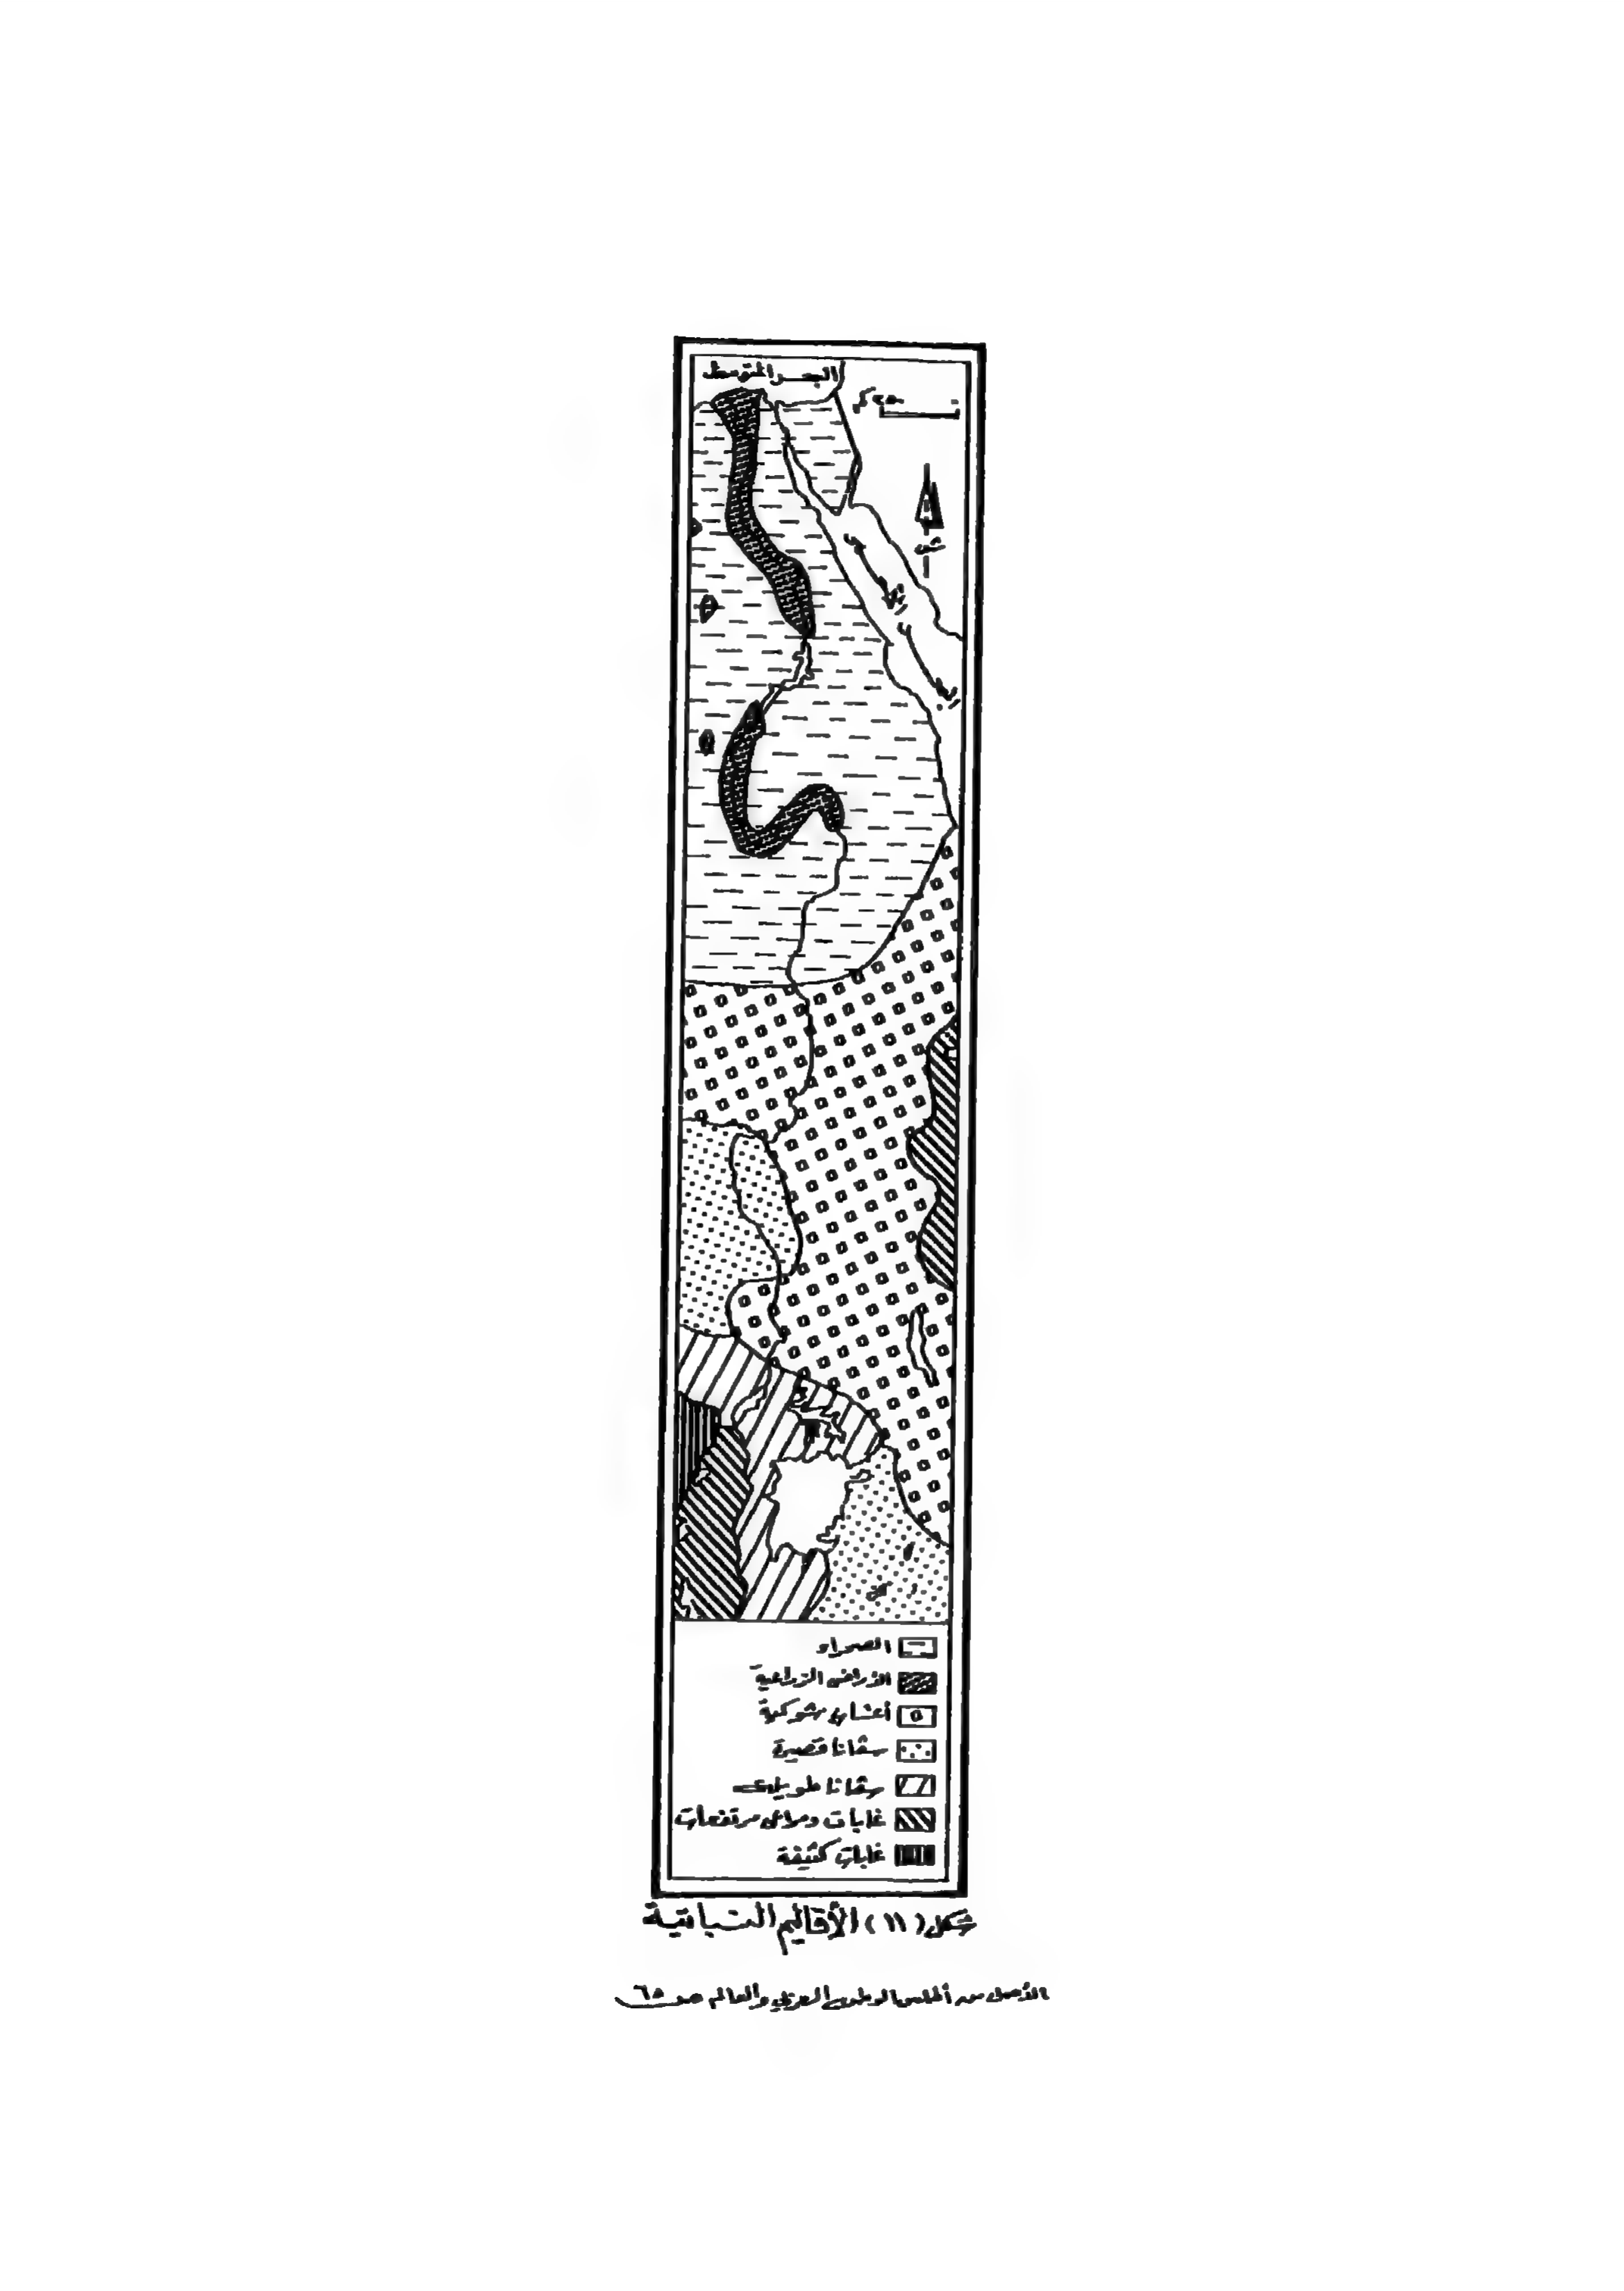 البحر المتوسط
٢٥٠ كم
البحر الأحمر
الصحراء
الأراضى الزراعية
أعشاب شوكية
سفانا قصيرة
سفانا طويلة
غابات ومراعى مرتفعات
غابات كثيفة
شكل (١١) الأقاليم النباتية
الأصل من أطلس الوطن العربي والعالم صـ ٦٥